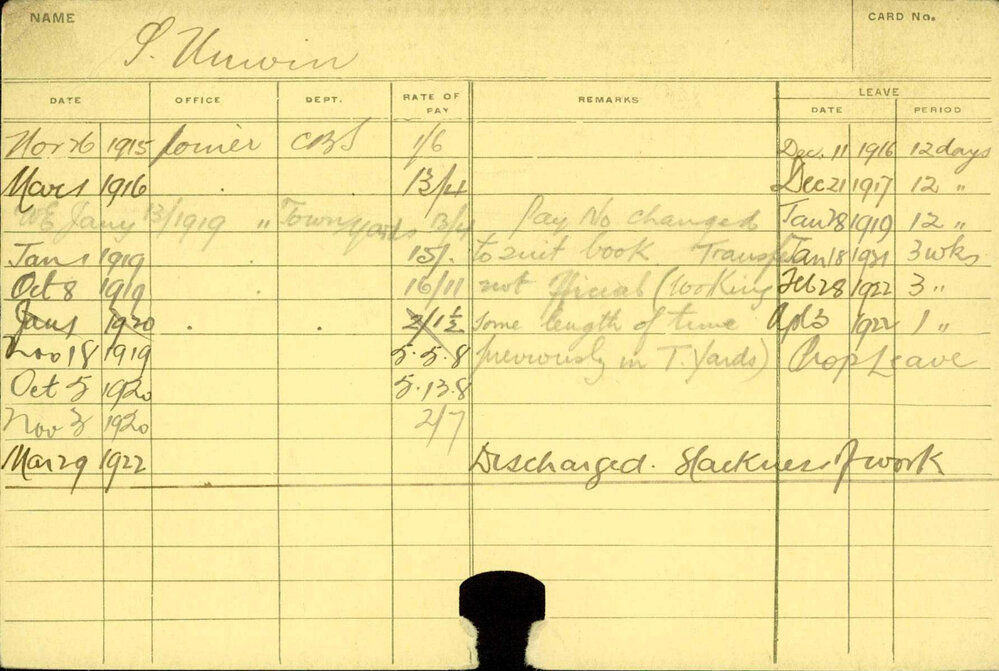 NAME S. Unwin CARD No.
DATE OFFICE DEPT. RATE OF PAY REMARKS LEAVE
DATE PERIOD
Nov 26 1915 Joiner CBS 1/6 Dec. 11 1916 12 days
Mar 1 1916 13/4 Dec 21 1917 12 "
WE Jany 13/1919 " Town Yards 13/4 Pay No changed Jan 28 1919 12 "
Jan 1 1919 15/. to suit book. Transfer Jan 18 1921 3 wks
Oct 8 1919 16/11 not official (working Feb 28 1922 3 "
Jan 1 1920 2/1½ some length of time Apl 3 1922 1 "
Nov 18 1919 5.5.8 previously in T. Yards) Prop Leave
Oct 5 1920 5.13.8
Nov 3 1920 2/7
Mar 29 1922 Discharged. Slackness of work